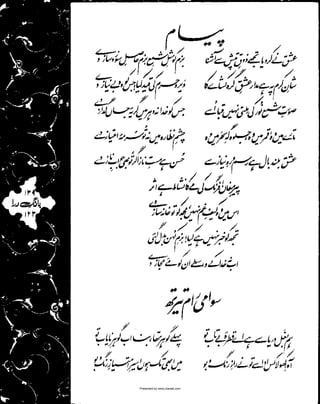 پیام
عشق نے کر دیا تجھے ذوقِ تپش سے آشنا بزم کو مثلِ شمعِ بزم حاصلِ سوز و ساز دے
شانِ کرم پہ ہے مدار عشقِ گرہ کشاے کا دیر و حرم کی قید کیا جس کو وہ بے نیاز دے
صورتِ شمع نور کی ملتی نہیں قبا اسے جس کو خدا نہ دہر میں گریۂ جاں گداز دے
تارے میں وہ قمر میں وہ جلوہ گہِ سحر میں وہ چشمِ نظارہ میں نہ تو سرمۂ امتیاز دے
عشق بلند بال ہے رسم و رہِ نیاز سے حسن ہے مستِ ناز اگر تو بھی جوابِ ناز دے
پیرِ مغاں فرنگ کی مے کا نشاط ہے اثر
اس میں وہ کیفِ غم نہیں مجھ کو تو خانہ ساز دے
تجھ کو خبر نہیں ہے کیا بزمِ کہن بدل گئی
اب نہ خدا کے واسطے ان کو مے مجاز دے
بانگِ درا
۱۲۳
سوامی رام تیرتھ
ہم بغل دریا سے ہے اے قطرۂ بے تاب تو پہلے گوہر تھا بنا اب گوہرِ نایاب تو
آہ کھولا کس ادا سے تو نے رازِ رنگ و بو میں ابھی تک ہوں اسیرِ امتیازِ رنگ و بو
Presented by www.ziaraat.com